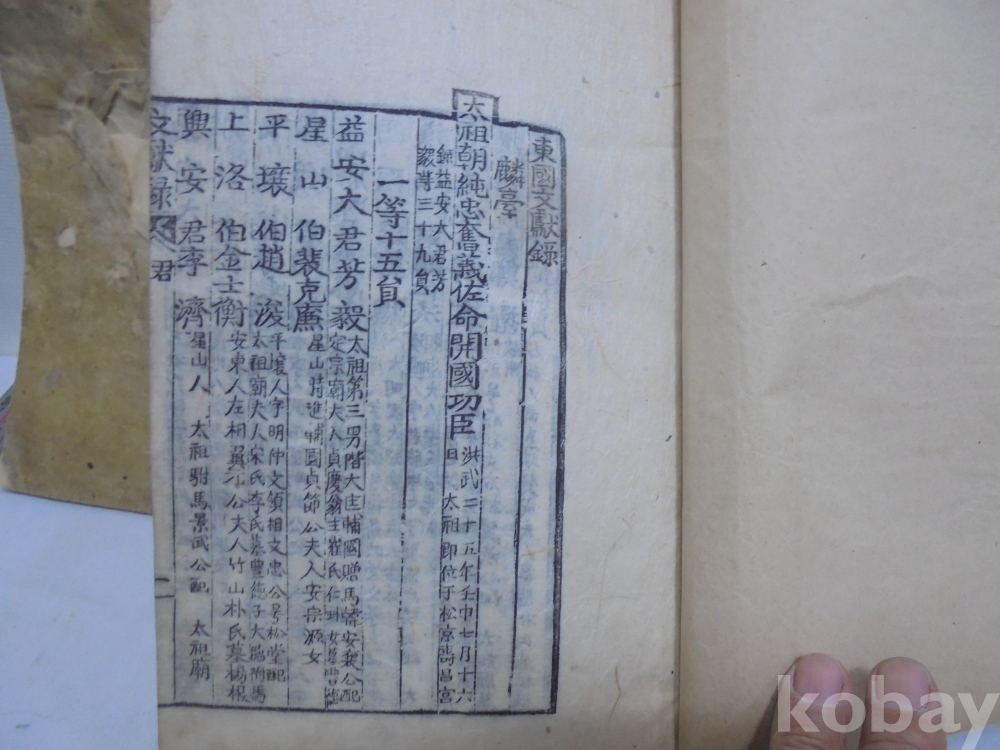 東國文獻錄
麟亭
太祖朝純忠奮義佐命開國功臣
洪武二十五年壬申七月十六
日 太祖即位于松京壽昌宮
錄益安大君芳
毅等三十九員
一等十五員
益安大君芳毅
太祖第三男階大匡輔國贈馬韓安襄公配
定宗廟夫人貞慶翁主崔氏仁玗女墓豊德
星山伯裴克廉
星山時進輔國貞節公夫人安宗源女
平壤伯趙浚
平壤人字明仲文領相文忠公号松堂配
太祖廟夫人宋氏李氏墓豊德子大臨駙馬
上洛伯金士衡
安東人左相翼元公夫人竹山朴氏墓楊根
興安君李濟
星山人 太祖駙馬景武公配 太祖廟
文獻錄 君
一
kobay